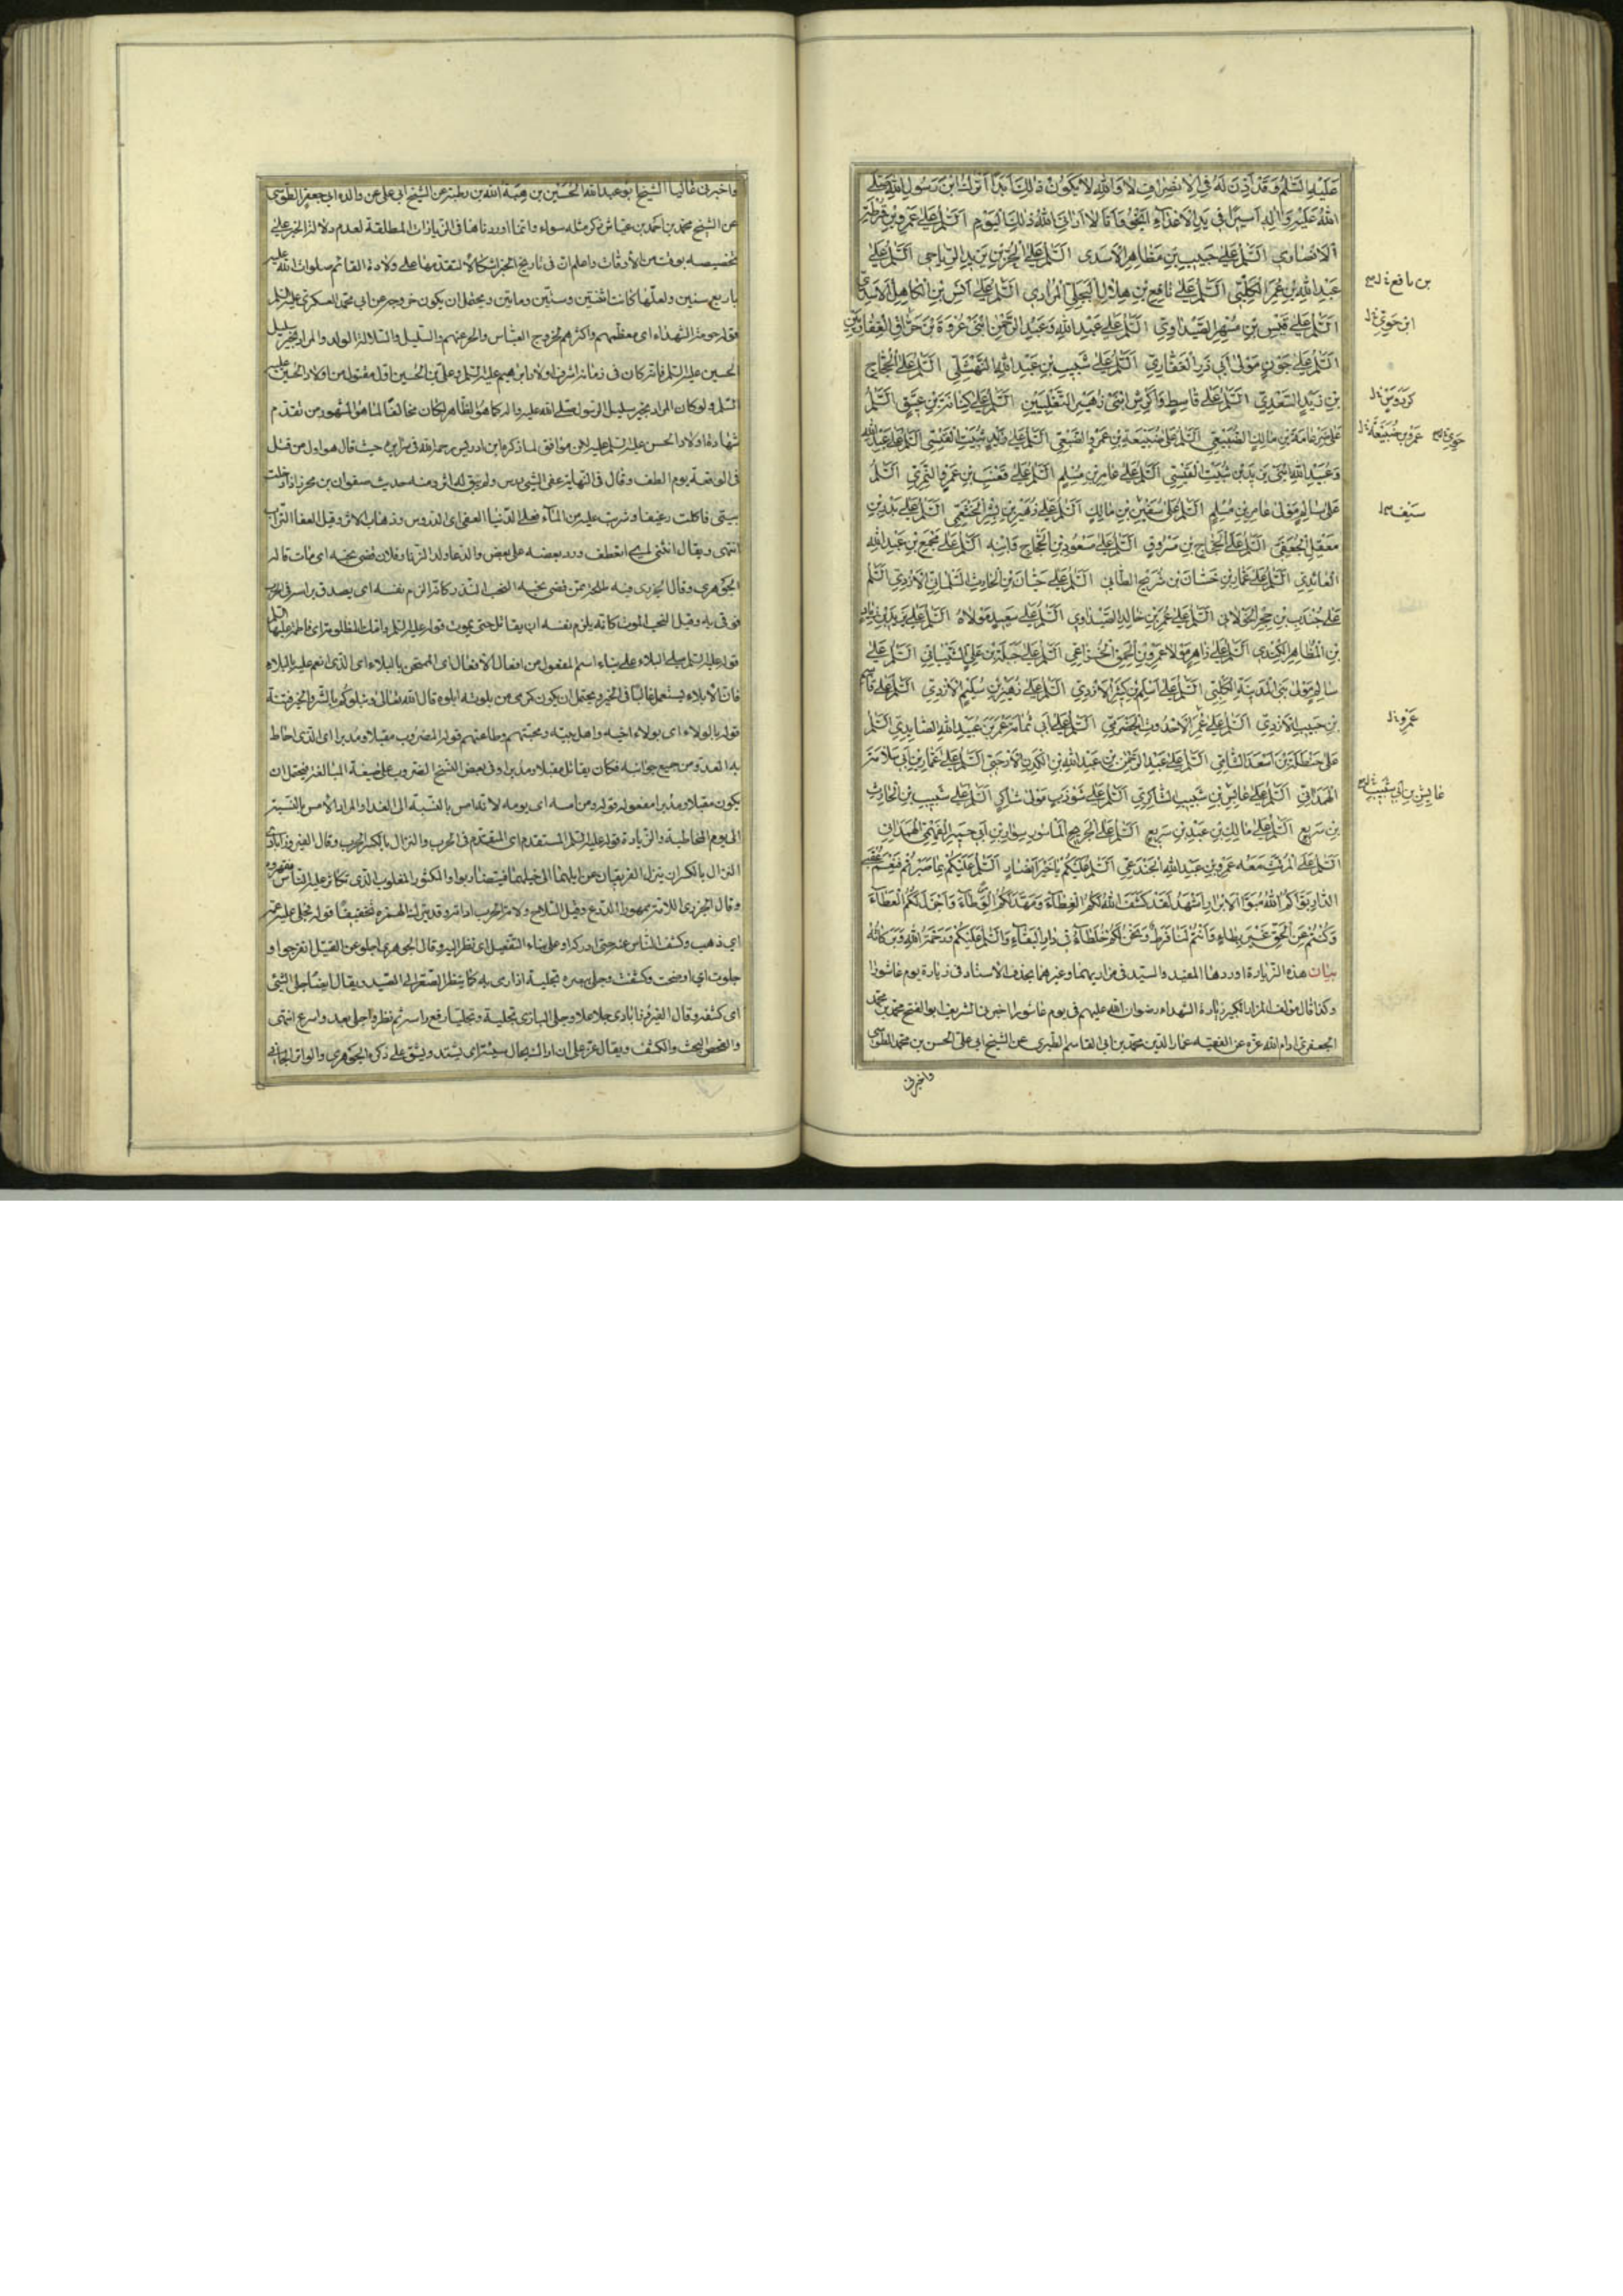 عَلَيْهِ السَّلَمُ وَقَدْ اَذِنَ لَهُ فِي الْاِنْصِرَافِ لَا وَاللهِ لَا يَكُونُ ذٰلِكَ اَبَدًا اَتْرُكُ ابْنَ رَسُولِ اللهِ صَلَّى
اللهُ عَلَيْهِ وَاٰلِهِ اَسِيرًا فِي يَدِ الْاَعْدَاءِ وَاَنْجُو اَنَا لَا اَرَانِيَ اللهُ ذٰلِكَ الْيَوْمَ اَلسَّلَمُ عَلٰى عَمْرِو بْنِ قُرْظَةَ
الْاَنْصَارِي اَلسَّلَمُ عَلٰى حَبِيبِ بْنِ مَظَاهِرِ الْاَسَدِي اَلسَّلَمُ عَلَى الْحُرِّ بْنِ يَزِيدِ الرِّيَاحِي اَلسَّلَمُ عَلٰى
عَبْدِ اللهِ بْنِ عُمَيْرِ الْكَلْبِي اَلسَّلَمُ عَلٰى نَافِعِ بْنِ هِلَالِ الْبَجَلِيِّ الْمُرَادِي اَلسَّلَمُ عَلٰى اَنَسِ بْنِ الْكَاهِلِ الْاَسَدِيِّ
اَلسَّلَمُ عَلٰى قَيْسِ بْنِ مُسْهِرِ الصَّيْدَاوِيِّ اَلسَّلَمُ عَلٰى عَبْدِ اللهِ وَعَبْدِ الرَّحْمٰنِ ابْنَيْ عُرْوَةَ بْنِ حَرَّاقِ الْغِفَارِيَّيْنِ
اَلسَّلَمُ عَلٰى جَوْنٍ مَوْلٰى اَبِي ذَرِّ الْغِفَارِيِّ اَلسَّلَمُ عَلٰى شَبِيبِ بْنِ عَبْدِ اللهِ النَّهْشَلِي اَلسَّلَمُ عَلَى الْحَجَّاجِ
بْنِ زَيْدِ السَّعْدِيِّ اَلسَّلَمُ عَلٰى قَاسِطٍ وَكَرِشٍ ابْنَيْ زُهَيْرِ التَّغْلِبِيَّيْنِ اَلسَّلَمُ عَلٰى كِنَانَةَ بْنِ عَتِيقٍ اَلسَّلَمُ
عَلٰى ضَرْغَامَةَ بْنِ مَالِكٍ اَلسَّلَمُ عَلٰى ضُبَيْعَةَ بْنِ عَمْرٍو الضُّبَعِي اَلسَّلَمُ عَلٰى زَيْدِ بْنِ ثُبَيْتِ الْقَيْسِي اَلسَّلَمُ عَلٰى عَبْدِ اللهِ
وَعُبَيْدِ اللهِ ابْنَيْ يَزِيدَ بْنِ ثُبَيْتِ الْقَيْسِي اَلسَّلَمُ عَلٰى عَامِرِ بْنِ مُسْلِمٍ اَلسَّلَمُ عَلٰى قَعْنَبِ بْنِ عَمْرٍو النَّمَرِيِّ اَلسَّلَمُ
عَلٰى سَالِمٍ مَوْلٰى عَامِرِ بْنِ مُسْلِمٍ اَلسَّلَمُ عَلٰى سُفَيْنِ بْنِ مَالِكٍ اَلسَّلَمُ عَلٰى زُهَيْرِ بْنِ بِشْرِ الْخَثْعَمِي اَلسَّلَمُ عَلٰى بَدْرِ بْنِ
مَعْقِلِ الْجُعْفِي اَلسَّلَمُ عَلَى الْحَجَّاجِ بْنِ مَسْرُوقٍ اَلسَّلَمُ عَلٰى مَسْعُودِ بْنِ الْحَجَّاجِ وَابْنِهِ اَلسَّلَمُ عَلٰى مُجَمِّعِ بْنِ عَبْدِ اللهِ
الْعَائِذِيِّ اَلسَّلَمُ عَلٰى عَمَّارِ بْنِ حَسَّانَ بْنِ شُرَيْحِ الطَّائِي اَلسَّلَمُ عَلٰى حَيَّانَ بْنِ الْحَارِثِ السَّلْمَانِيِّ الْاَزْدِيِّ اَلسَّلَمُ
عَلٰى جُنْدَبِ بْنِ حِجْرِ الْخَوْلَانِي اَلسَّلَمُ عَلٰى عُمَرَ بْنِ خَالِدِ الصَّيْدَاوِي اَلسَّلَمُ عَلٰى سَعِيدٍ مَوْلَاهُ اَلسَّلَمُ عَلٰى يَزِيدَ بْنِ زِيَادِ
بْنِ الْمُظَاهِرِ الْكِنْدِي اَلسَّلَمُ عَلٰى زَاهِرٍ مَوْلٰى عَمْرِو بْنِ الْحَمِقِ الْخُزَاعِي اَلسَّلَمُ عَلٰى جَبَلَةَ بْنِ عَلِيٍّ الشَّيْبَانِي اَلسَّلَمُ عَلٰى
سَالِمٍ مَوْلٰى بَنِي الْمَدَنِيَّةِ الْكَلْبِي اَلسَّلَمُ عَلٰى اَسْلَمَ بْنِ كَثِيرِ الْاَزْدِيِّ اَلسَّلَمُ عَلٰى زُهَيْرِ بْنِ سُلَيْمِ الْاَزْدِيِّ اَلسَّلَمُ عَلٰى قَاسِمِ
بْنِ حَبِيبِ الْاَزْدِيِّ اَلسَّلَمُ عَلٰى عُمَرَ الْاُحْدُوثِ الْحَضْرَمِيِّ اَلسَّلَمُ عَلٰى اَبِي ثُمَامَةَ عُمَرَ بْنِ عَبْدِ اللهِ الصَّائِدِيِّ اَلسَّلَمُ
عَلٰى حَنْظَلَةَ بْنِ اَسْعَدَ الشَّامِيِّ اَلسَّلَمُ عَلٰى عَبْدِ الرَّحْمٰنِ بْنِ عَبْدِ اللهِ بْنِ الْكَدِرِ الْاَرْحَبِيِّ اَلسَّلَمُ عَلٰى عَمَّارِ بْنِ اَبِي سَلَامَةَ
الْهَمْدَانِيِّ اَلسَّلَمُ عَلٰى عَابِسِ بْنِ شَبِيبِ الشَّاكِرِيِّ اَلسَّلَمُ عَلٰى شَوْذَبٍ مَوْلٰى شَاكِرٍ اَلسَّلَمُ عَلٰى شَبِيبِ بْنِ الْحَارِثِ
بْنِ سَرِيعٍ اَلسَّلَمُ عَلٰى مَالِكِ بْنِ عَبْدِ بْنِ سَرِيعٍ اَلسَّلَمُ عَلَى الْجَرِيحِ الْمَأْسُورِ سَوَّارِ بْنِ اَبِي حِمْيَرِ الْفَهْمِيِّ الْهَمْدَانِيِّ
اَلسَّلَمُ عَلَى الْمُرْتَثِّ مَعَهُ عَمْرِو بْنِ عَبْدِ اللهِ الْجُنْدَعِيِّ اَلسَّلَمُ عَلَيْكُمْ يَا خَيْرَ اَنْصَارٍ اَلسَّلَمُ عَلَيْكُمْ بِمَا صَبَرْتُمْ فَنِعْمَ عُقْبَى
الدَّارِ بَوَّاَكُمُ اللهُ مُبَوَّءَ الْاَبْرَارِ اَشْهَدُ لَقَدْ كَشَفَ اللهُ لَكُمُ الْغِطَاءَ وَمَهَّدَ لَكُمُ الْوِطَاءَ وَاَجْزَلَ لَكُمُ الْعَطَاءَ
وَكُنْتُمْ عَنِ الْحَقِّ غَيْرَ بِطَاءٍ وَاَنْتُمْ لَنَا فَرَطٌ وَنَحْنُ لَكُمْ خُلَطَاءُ فِي دَارِ الْبَقَاءِ وَالسَّلَمُ عَلَيْكُمْ وَرَحْمَةُ اللهِ وَبَرَكَاتُهُ
بيان هذه الزيارة اوردها المفيد والسيد في مزاريهما وغيرهما بحذف الاسناد في زيارة يوم عاشورا
وكذا قال مؤلف المزار الكبير زيارة الشهداء رضوان الله عليهم في يوم عاشورا اخبرنا الشريف ابو الفتح محمد بن محمد
الجعفري ادام الله عزه عن الفقيه عماد الدين محمد بن ابي القاسم الطبري عن الشيخ ابي علي الحسن بن محمد الطوسي
واخبرني
بن نافع
ابن حوى
كردوس
عمرو بن ضبيعة
جوين
سيف
عمرو
عابس بن ابي شبيب
واخبرني عاليا الشيخ ابو عبد الله الحسين بن هبة الله بن رطبة عن الشيخ ابي علي عن والده ابي جعفر الطوسي
عن الشيخ محمد بن احمد بن عياش ذكر مثله سواء وانما اوردناها في الزيارات المطلقة لعدم دلالة الخبر على
تخصيصه بوقت من الاوقات واعلم ان في تاريخ الخبر اشكالا لتقدمها على ولادة القائم صلوات الله عليه
باربع سنين ولعلها كانت اثنتين وستين ومأتين ويحتمل ان يكون خروجه عن ابي محمد العسكري عليه السلم
قوله حومة الشهداء اي معظمهم واكثرهم والسليل والسلالة الولد والمراد بخير سليل
الحسين عليه السلم فانه كان في زمانه اشرف اولاد ابرهيم عليه السلم وعلي بن الحسين اول مقتول من اولاد الحسين عليه
السلم ولو كان المراد بخير سليل الرسول صلى الله عليه واله كما هو الظاهر لكان مخالفا لما هو المشهور من تقدم
شهادة اولاد الحسن عليه السلم عليه لكن موافق لما ذكره ابن ادريس رحمه الله في سرايره حيث قال هو اول من قتل
في الوقعة يوم الطف وقال في النهاية عفى الشيء درس ولم يبق له اثر ومنه حديث صفوان بن محرز اذا دخلت
بيتي فاكلت رغيفا وشربت عليه من الماء فعلى الدنيا العفى اي الدروس وذهاب الاثر وقيل العفا التراب
انتهى ويقال انثنى اي انعطف ورد بعضه على بعض والدعي ولد الزنا وفلان قضى نحبه اي مات قاله
الجوهري وقال الجزري فيه طلحة ممن قضى نحبه النحب النذر كانه الزم نفسه ان يصدق الله في الحرب
فوفى به وقيل النحب الموت كانه يلزم نفسه ان يقاتل حتى يموت قوله عليه السلم وامك المظلومة اي فاطمة عليها السلم
قوله عليه السلم مبلى البلاء على بناء اسم المفعول من افعال الافعال اي الممتحن بالبلاء اي الذي انعم عليه بالبلاء
فان الابلاء يستعمل غالبا في الخير ويحتمل ان يكون كرمى من بلوته ابلوه قال الله تعالى ونبلوكم بالشر والخير فتنة
قوله بالولاء اي بولاء اخيه واهل بيته ومحبتهم وطاعتهم قوله المضروب مقبلا ومدبرا اي الذي احاط
به العدو من جميع جوانبه فكان يقاتل مقبلا ومدبرا وفي بعض النسخ الضروب على صيغة المبالغة فيحتمل ان
يكون مقبلا ومدبرا مفعوله قوله ومن امسه اي يومه لانه امس بالنسبة الى الغد او المراد الامس بالنسبة
الى يوم المخاطبة والزيارة قوله عليه السلم المستقدم اي المتقدم في الحرب والنزال بالكسر الحرب وقال الفيروزآبادي
النزال بالكسر ان ينزل الفريقان عن ابلهما الى خيلهما فيتضاربوا والمكثور المغلوب الذي تكاثر عليه الناس فقهروه
وقال الجزري اللامة مهموزا الدرع وقيل السلاح ولامة الحرب اداته وقد يترك الهمزة تخفيفا قوله
اي ذهب وكشف الناس عنه حتى ادركه او على بناء التفعيل اي نظر اليه وقال الجوهري اجلوا عن القتيل انفرجوا و
جلوت اي اوضحت وكشفت وجلى ببصره تجلية اذا رمى به كما ينظر الصقر الى الصيد ويقال ايضا جلى الشيء
اي كشفه وقال الفيروزآبادي جلا علا وجلى البازي تجلية وتجليا رفع راسه ثم نظر واجلى بعد واسرع انتهى
والفحص البحث والكشف ويقال عز علي ان اراك بحال سيئة اي يشتد ويشق علي ذكره الجوهري والواني الجاني